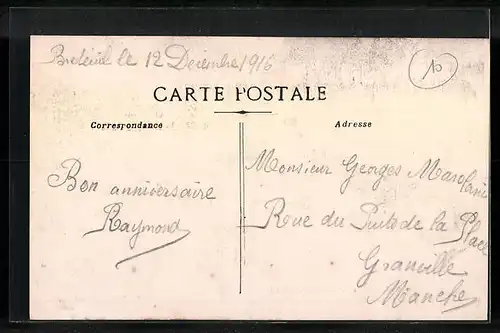 Breteuil le 12 Décembre 1916
10
CARTE POSTALE
Correspondance
Adresse
Bon anniversaire
Raymond
Monsieur Georges
Rue du Puits de la Place
Granville
Manche